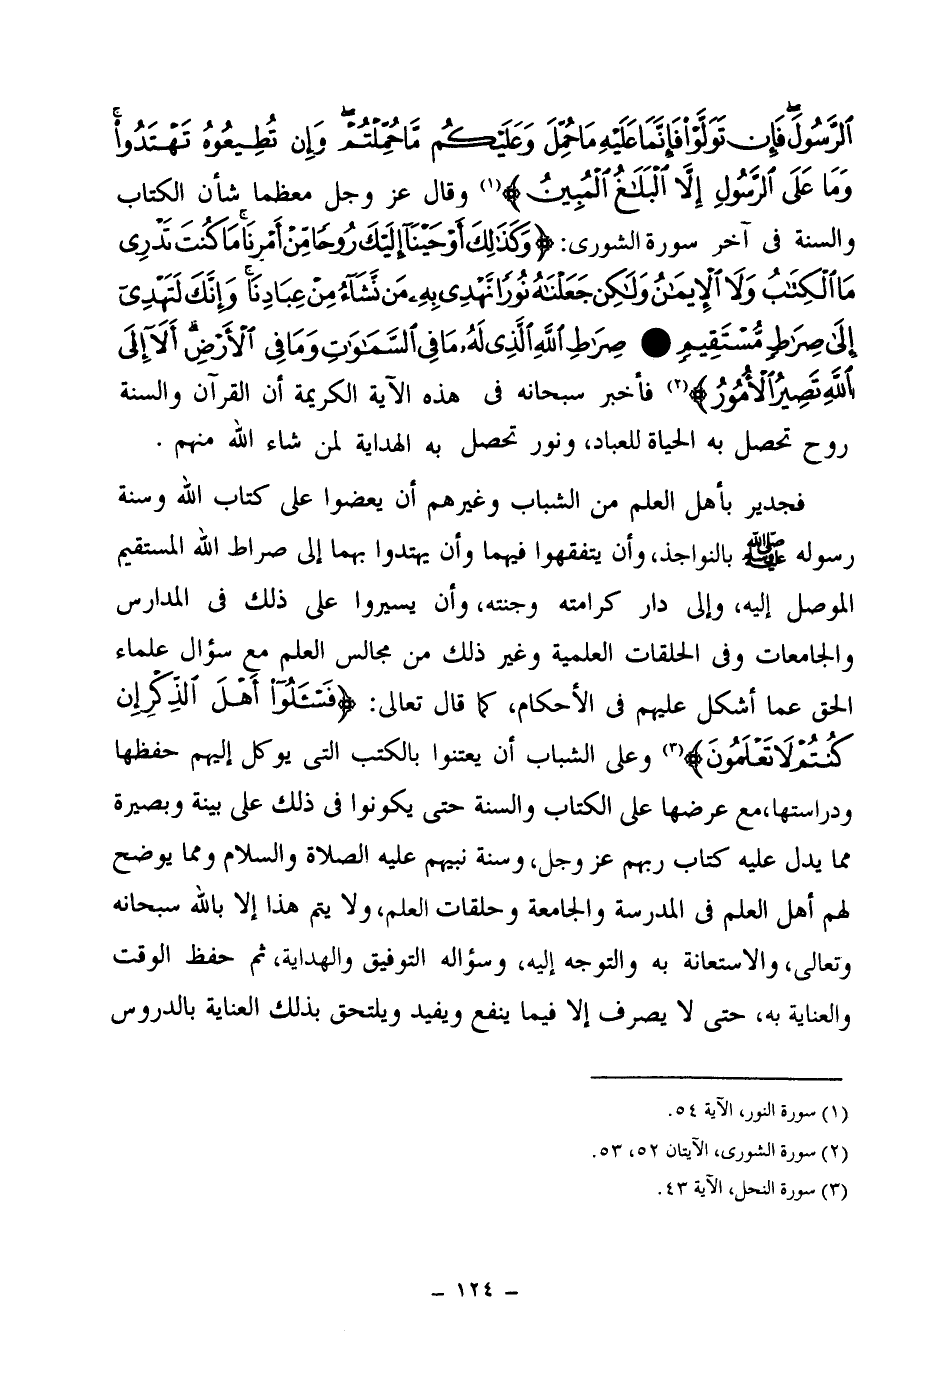 ٱلرَّسُولَۖ فَإِن تَوَلَّوْا۟ فَإِنَّمَا عَلَيْهِ مَا حُمِّلَ وَعَلَيْكُم مَّا حُمِّلْتُمْۖ وَإِن تُطِيعُوهُ تَهْتَدُوا۟ۚ
وَمَا عَلَى ٱلرَّسُولِ إِلَّا ٱلْبَلَٰغُ ٱلْمُبِينُ﴾(١) وقال عز وجل معظما شأن الكتاب
والسنة فى آخر سورة الشورى: ﴿وَكَذَٰلِكَ أَوْحَيْنَآ إِلَيْكَ رُوحًا مِّنْ أَمْرِنَاۚ مَا كُنتَ تَدْرِى
مَا ٱلْكِتَٰبُ وَلَا ٱلْإِيمَٰنُ وَلَٰكِن جَعَلْنَٰهُ نُورًا نَّهْدِى بِهِۦ مَن نَّشَآءُ مِنْ عِبَادِنَاۚ وَإِنَّكَ لَتَهْدِىٓ
إِلَىٰ صِرَٰطٍ مُّسْتَقِيمٍ ● صِرَٰطِ ٱللَّهِ ٱلَّذِى لَهُۥ مَا فِى ٱلسَّمَٰوَٰتِ وَمَا فِى ٱلْأَرْضِۗ أَلَآ إِلَى
ٱللَّهِ تَصِيرُ ٱلْأُمُورُ﴾(٢) فأخبر سبحانه فى هذه الآية الكريمة أن القرآن والسنة
روح تحصل به الحياة للعباد، ونور تحصل به الهداية لمن شاء الله منهم .
فجدير بأهل العلم من الشباب وغيرهم أن يعضوا على كتاب الله وسنة
رسوله ﷺ بالنواجذ، وأن يتفقهوا فيهما وأن يهتدوا بهما إلى صراط الله المستقيم
الموصل إليه، وإلى دار كرامته وجنته، وأن يسيروا على ذلك فى المدارس
والجامعات وفى الحلقات العلمية وغير ذلك من مجالس العلم مع سؤال علماء
الحق عما أشكل عليهم فى الأحكام، كما قال تعالى: ﴿فَسْـَٔلُوٓا۟ أَهْلَ ٱلذِّكْرِ إِن
كُنتُمْ لَا تَعْلَمُونَ﴾(٣) وعلى الشباب أن يعتنوا بالكتب التى يوكل إليهم حفظها
ودراستها، مع عرضها على الكتاب والسنة حتى يكونوا فى ذلك على بينة وبصيرة
مما يدل عليه كتاب ربهم عز وجل، وسنة نبيهم عليه الصلاة والسلام ومما يوضح
لهم أهل العلم فى المدرسة والجامعة وحلقات العلم، ولا يتم هذا إلا بالله سبحانه
وتعالى، والاستعانة به والتوجه إليه، وسؤاله التوفيق والهداية، ثم حفظ الوقت
والعناية به، حتى لا يصرف إلا فيما ينفع ويفيد ويلتحق بذلك العناية بالدروس
(١) سورة النور، الآية ٥٤.
(٢) سورة الشورى، الآيتان ٥٢، ٥٣.
(٣) سورة النحل، الآية ٤٣.
– ١٢٤ –